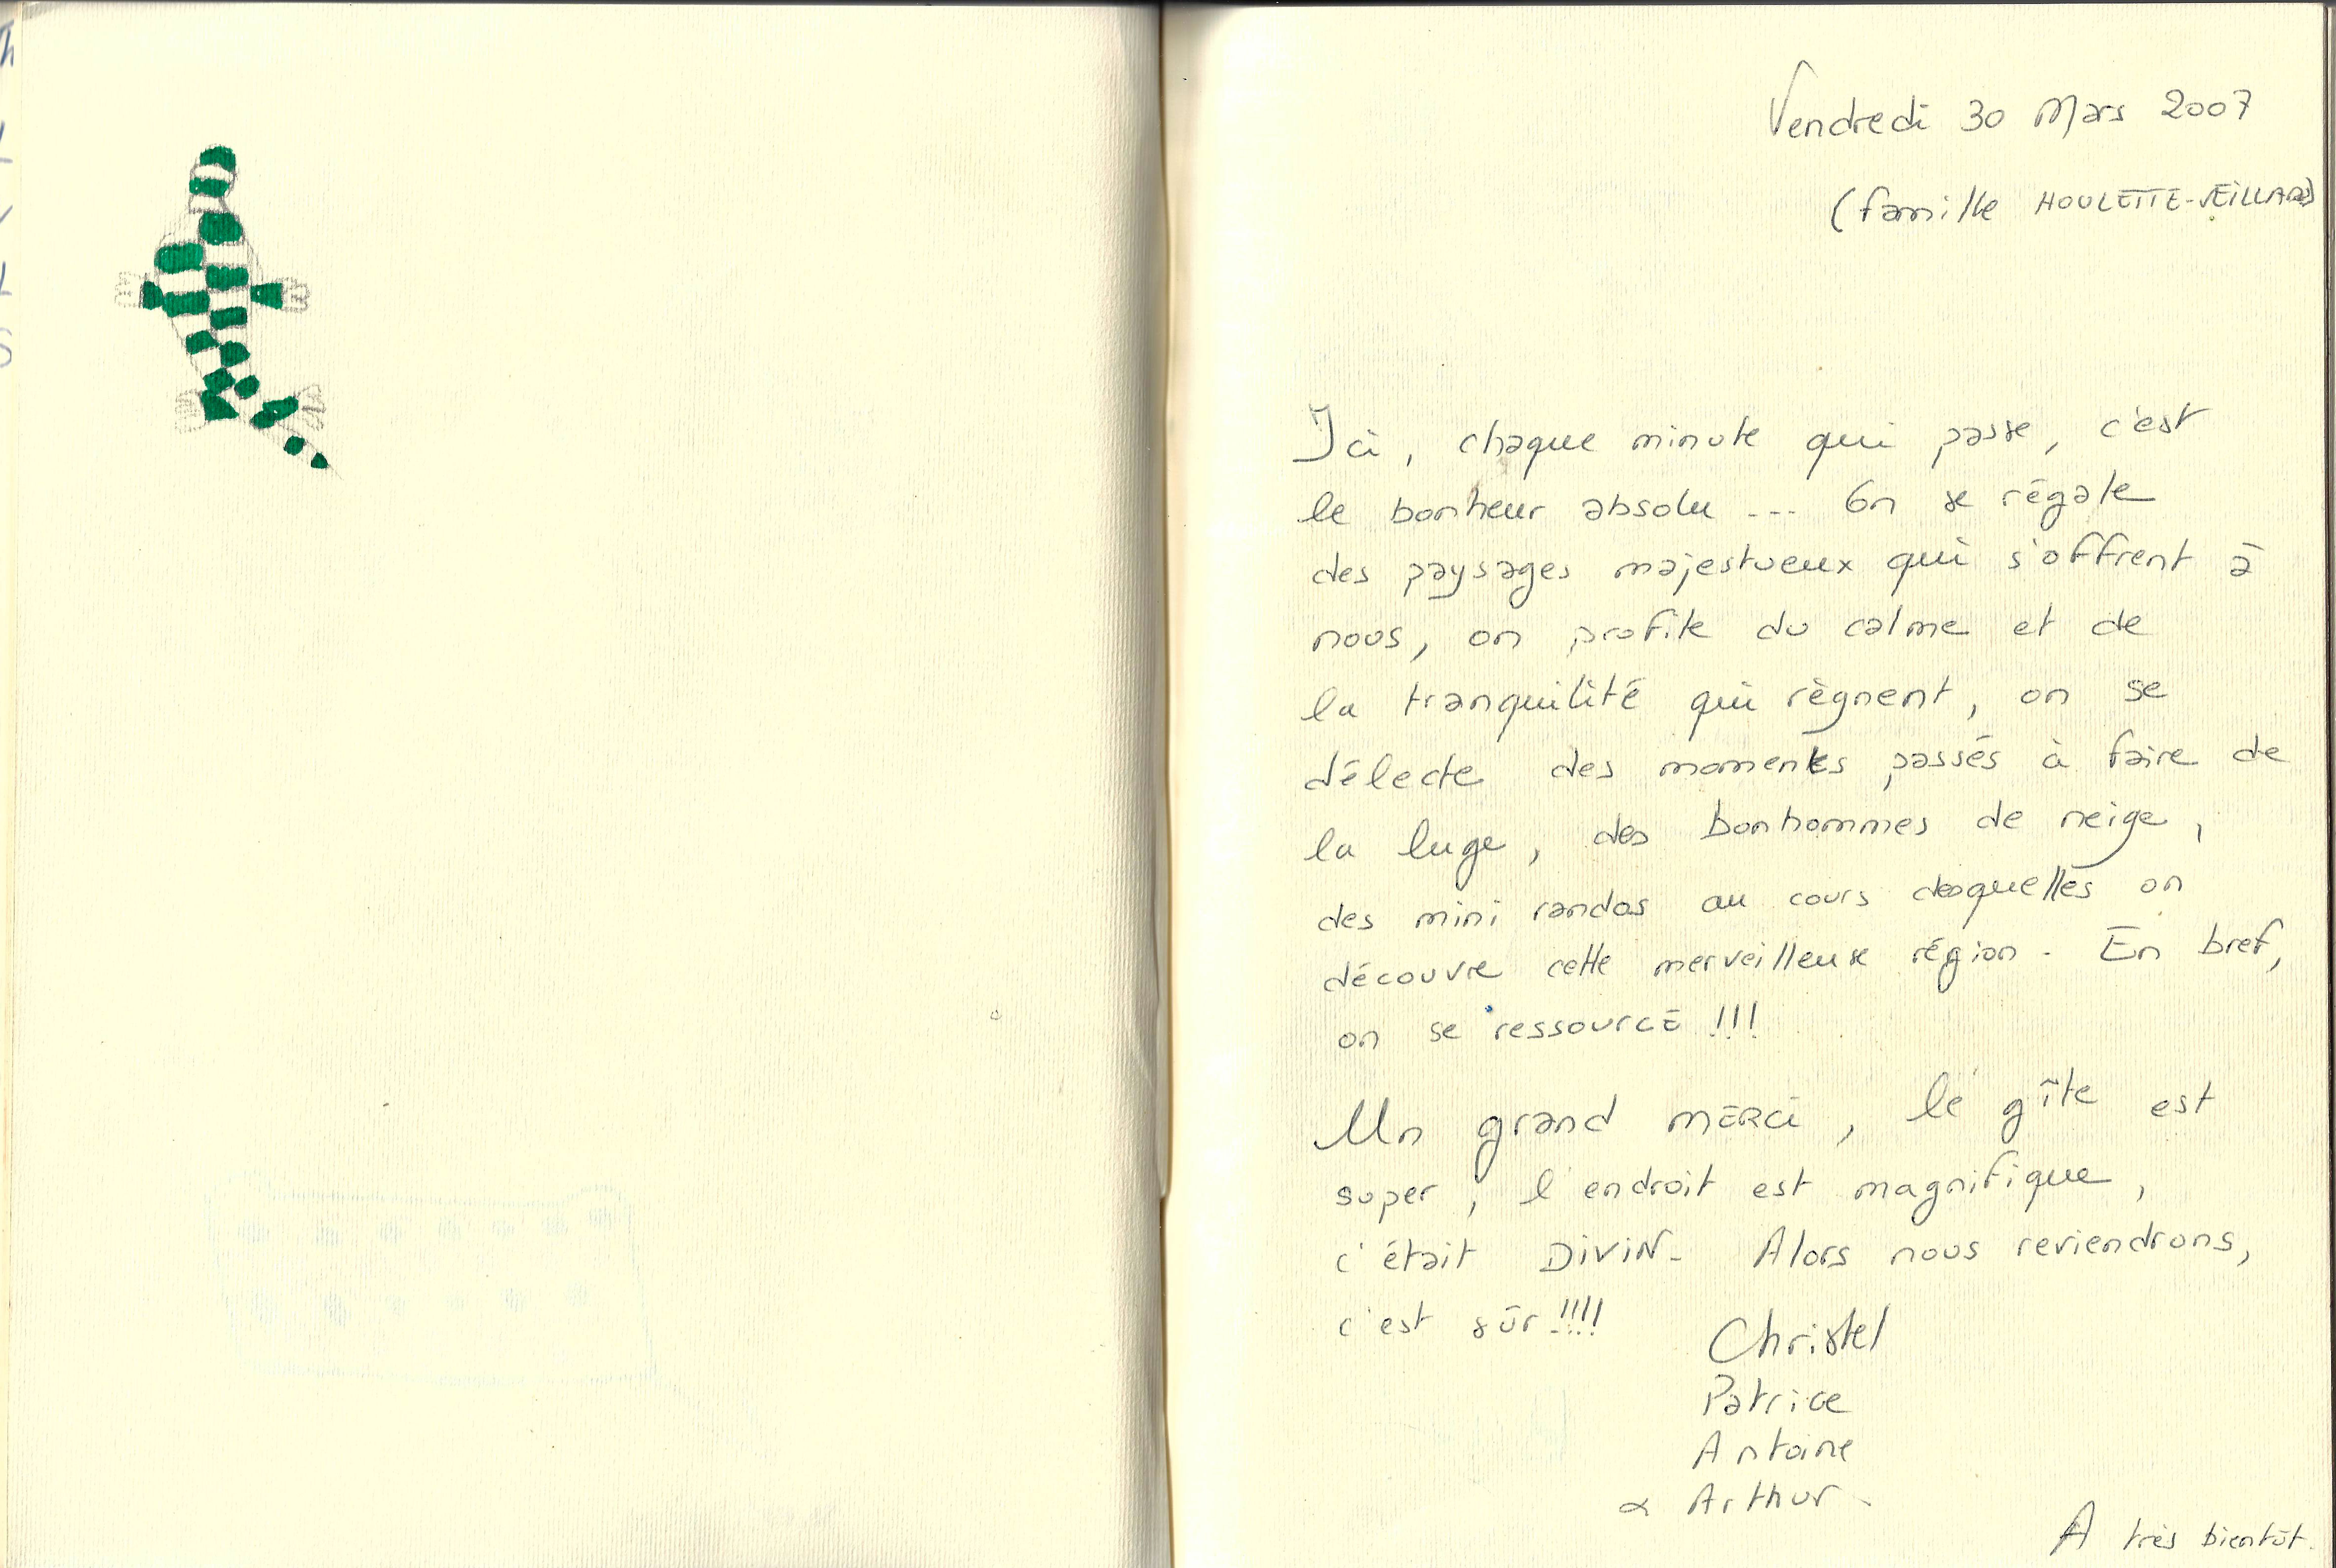 Vendredi 30 Mars 2007
(famille HOULETTE-VEILLARD)
Ici, chaque minute qui passe, c'est
le bonheur absolu... On se régale
des paysages majestueux qui s'offrent à
nous, on profite du calme et de
la tranquilité qui règnent, on se
délecte des moments passés à faire de
la luge, des bonhommes de neige,
des mini randos au cours desquelles on
découvre cette merveilleuse région. En bref,
on se ressource !!!
Un grand MERCi, le gîte est
super, l'endroit est magnifique,
c'était DiViN. Alors nous reviendrons,
c'est sûr !!!!
Christel
Patrice
Antoine
& Arthur.
A très bientôt.